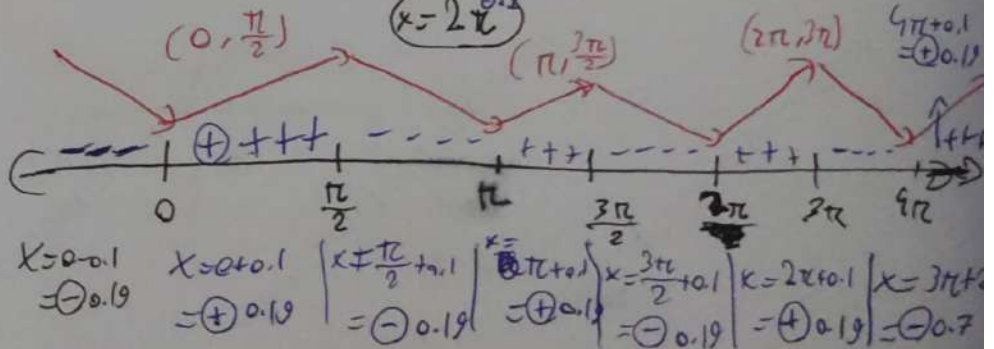 x=2π
(0, π/2)
(π, 3π/2)
(2π, 3π)
4π+0.1
=⊕0.19
--- ⊕+++ ---- +++ ---- +++ ---- +++
0 π/2 π 3π/2 2π 3π 4π
x=0-0.1
=⊖0.19
x=0+0.1
=⊕0.19
x=π/2+0.1
=⊖0.19
x=
π+0.1
=⊕0.19
x=3π/2+0.1
=⊖0.19
x=2π+0.1
=⊕0.19
x=3π+
=⊖0.7